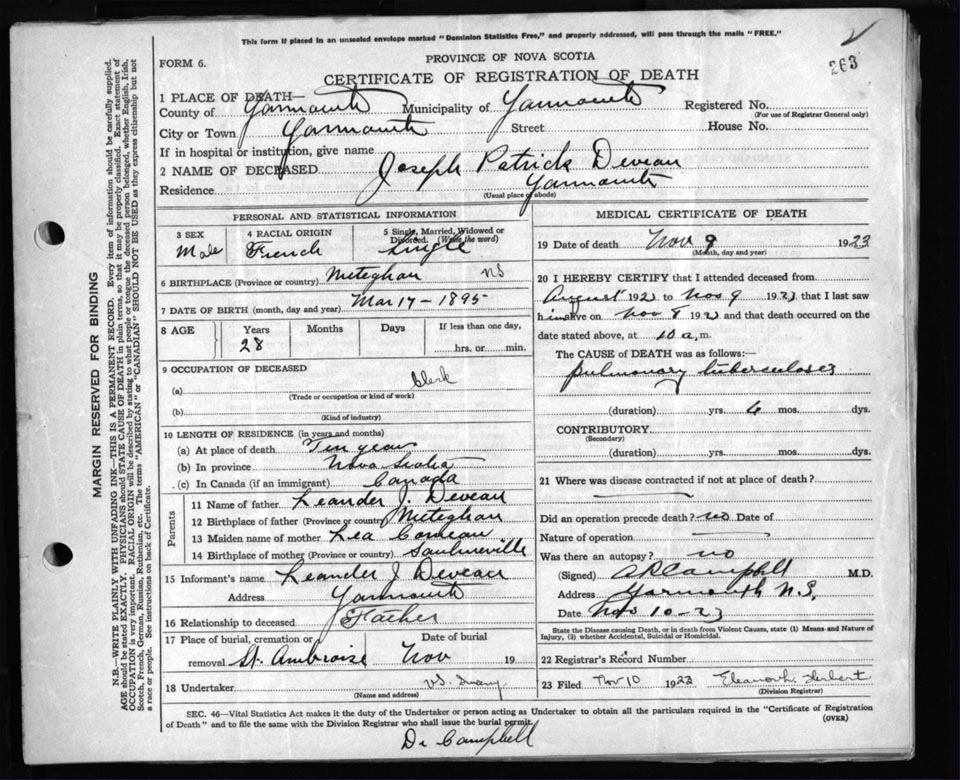 This form if placed in an unsealed envelope marked "Dominion Statistics Free," and properly addressed, will pass through the mails "FREE."
263
FORM 6.
PROVINCE OF NOVA SCOTIA
CERTIFICATE OF REGISTRATION OF DEATH
1 PLACE OF DEATH—
County of Yarmouth Municipality of Yarmouth Registered No.
(For use of Registrar General only)
City or Town Yarmouth Street House No.
If in hospital or institution, give name
2 NAME OF DECEASED Joseph Patrick Deveau
Residence Yarmouth
(Usual place of abode)
PERSONAL AND STATISTICAL INFORMATION
3 SEX 4 RACIAL ORIGIN 5 Single, Married, Widowed or Divorced. (Write the word)
Male French Single
6 BIRTHPLACE (Province or country) Meteghan NS
7 DATE OF BIRTH (month, day and year) Mar 17 - 1895
8 AGE Years Months Days If less than one day,
28 hrs. or min.
9 OCCUPATION OF DECEASED
(a) Clerk
(Trade or occupation or kind of work)
(b)
(Kind of industry)
10 LENGTH OF RESIDENCE (in years and months)
(a) At place of death Ten years
(b) In province Nova Scotia
(c) In Canada (if an immigrant) Canada
Parents
11 Name of father Leander J. Deveau
12 Birthplace of father (Province or country) Meteghan
13 Maiden name of mother Lea Comeau
14 Birthplace of mother (Province or country) Saulnierville
15 Informant's name Leander J Deveau
Address Yarmouth
16 Relationship to deceased Father
17 Place of burial, cremation or Date of burial
removal St. Ambroise Nov 19
18 Undertaker
(Name and address)
MEDICAL CERTIFICATE OF DEATH
19 Date of death Nov 9 1923
(Month, day and year)
20 I HEREBY CERTIFY that I attended deceased from
August 1923 to Nov 9 1923 that I last saw
him alive on Nov 8 1923 and that death occurred on the
date stated above, at 10 a.m.
The CAUSE OF DEATH was as follows:—
pulmonary tuberculosis
(duration) yrs. 4 mos. dys.
CONTRIBUTORY
(Secondary)
(duration) yrs. mos. dys.
21 Where was disease contracted if not at place of death?
Did an operation precede death? no Date of
Nature of operation
Was there an autopsy? no
(Signed) Campbell M.D.
Address Yarmouth N.S.
Date Nov 10-23
State the Disease causing Death, or in death from Violent Causes, state (1) Means and Nature of
Injury, (2) whether Accidental, Suicidal or Homicidal.
22 Registrar's Record Number
23 Filed Nov 10 1923 Eleanor L. Herbert
(Division Registrar)
SEC. 46—Vital Statistics Act makes it the duty of the Undertaker or person acting as Undertaker to obtain all the particulars required in the "Certificate of Registration
of Death" and to file the same with the Division Registrar who shall issue the burial permit. (OVER)
Dr Campbell
MARGIN RESERVED FOR BINDING
N.B.—WRITE PLAINLY WITH UNFADING INK—THIS IS A PERMANENT RECORD. Every item of information should be carefully supplied.
AGE should be stated EXACTLY. PHYSICIANS should STATE CAUSE OF DEATH in plain terms, so that it may be properly classified. Exact statement of
OCCUPATION is very important. RACIAL ORIGIN will be described by stating to what people or tongue the deceased person belonged, whether English, Irish,
Scotch, French, German, Russian, Ruthenian, etc. The terms "AMERICAN" or "CANADIAN" SHOULD NOT BE USED as they express citizenship but not
a race or people. See instructions on back of Certificate.